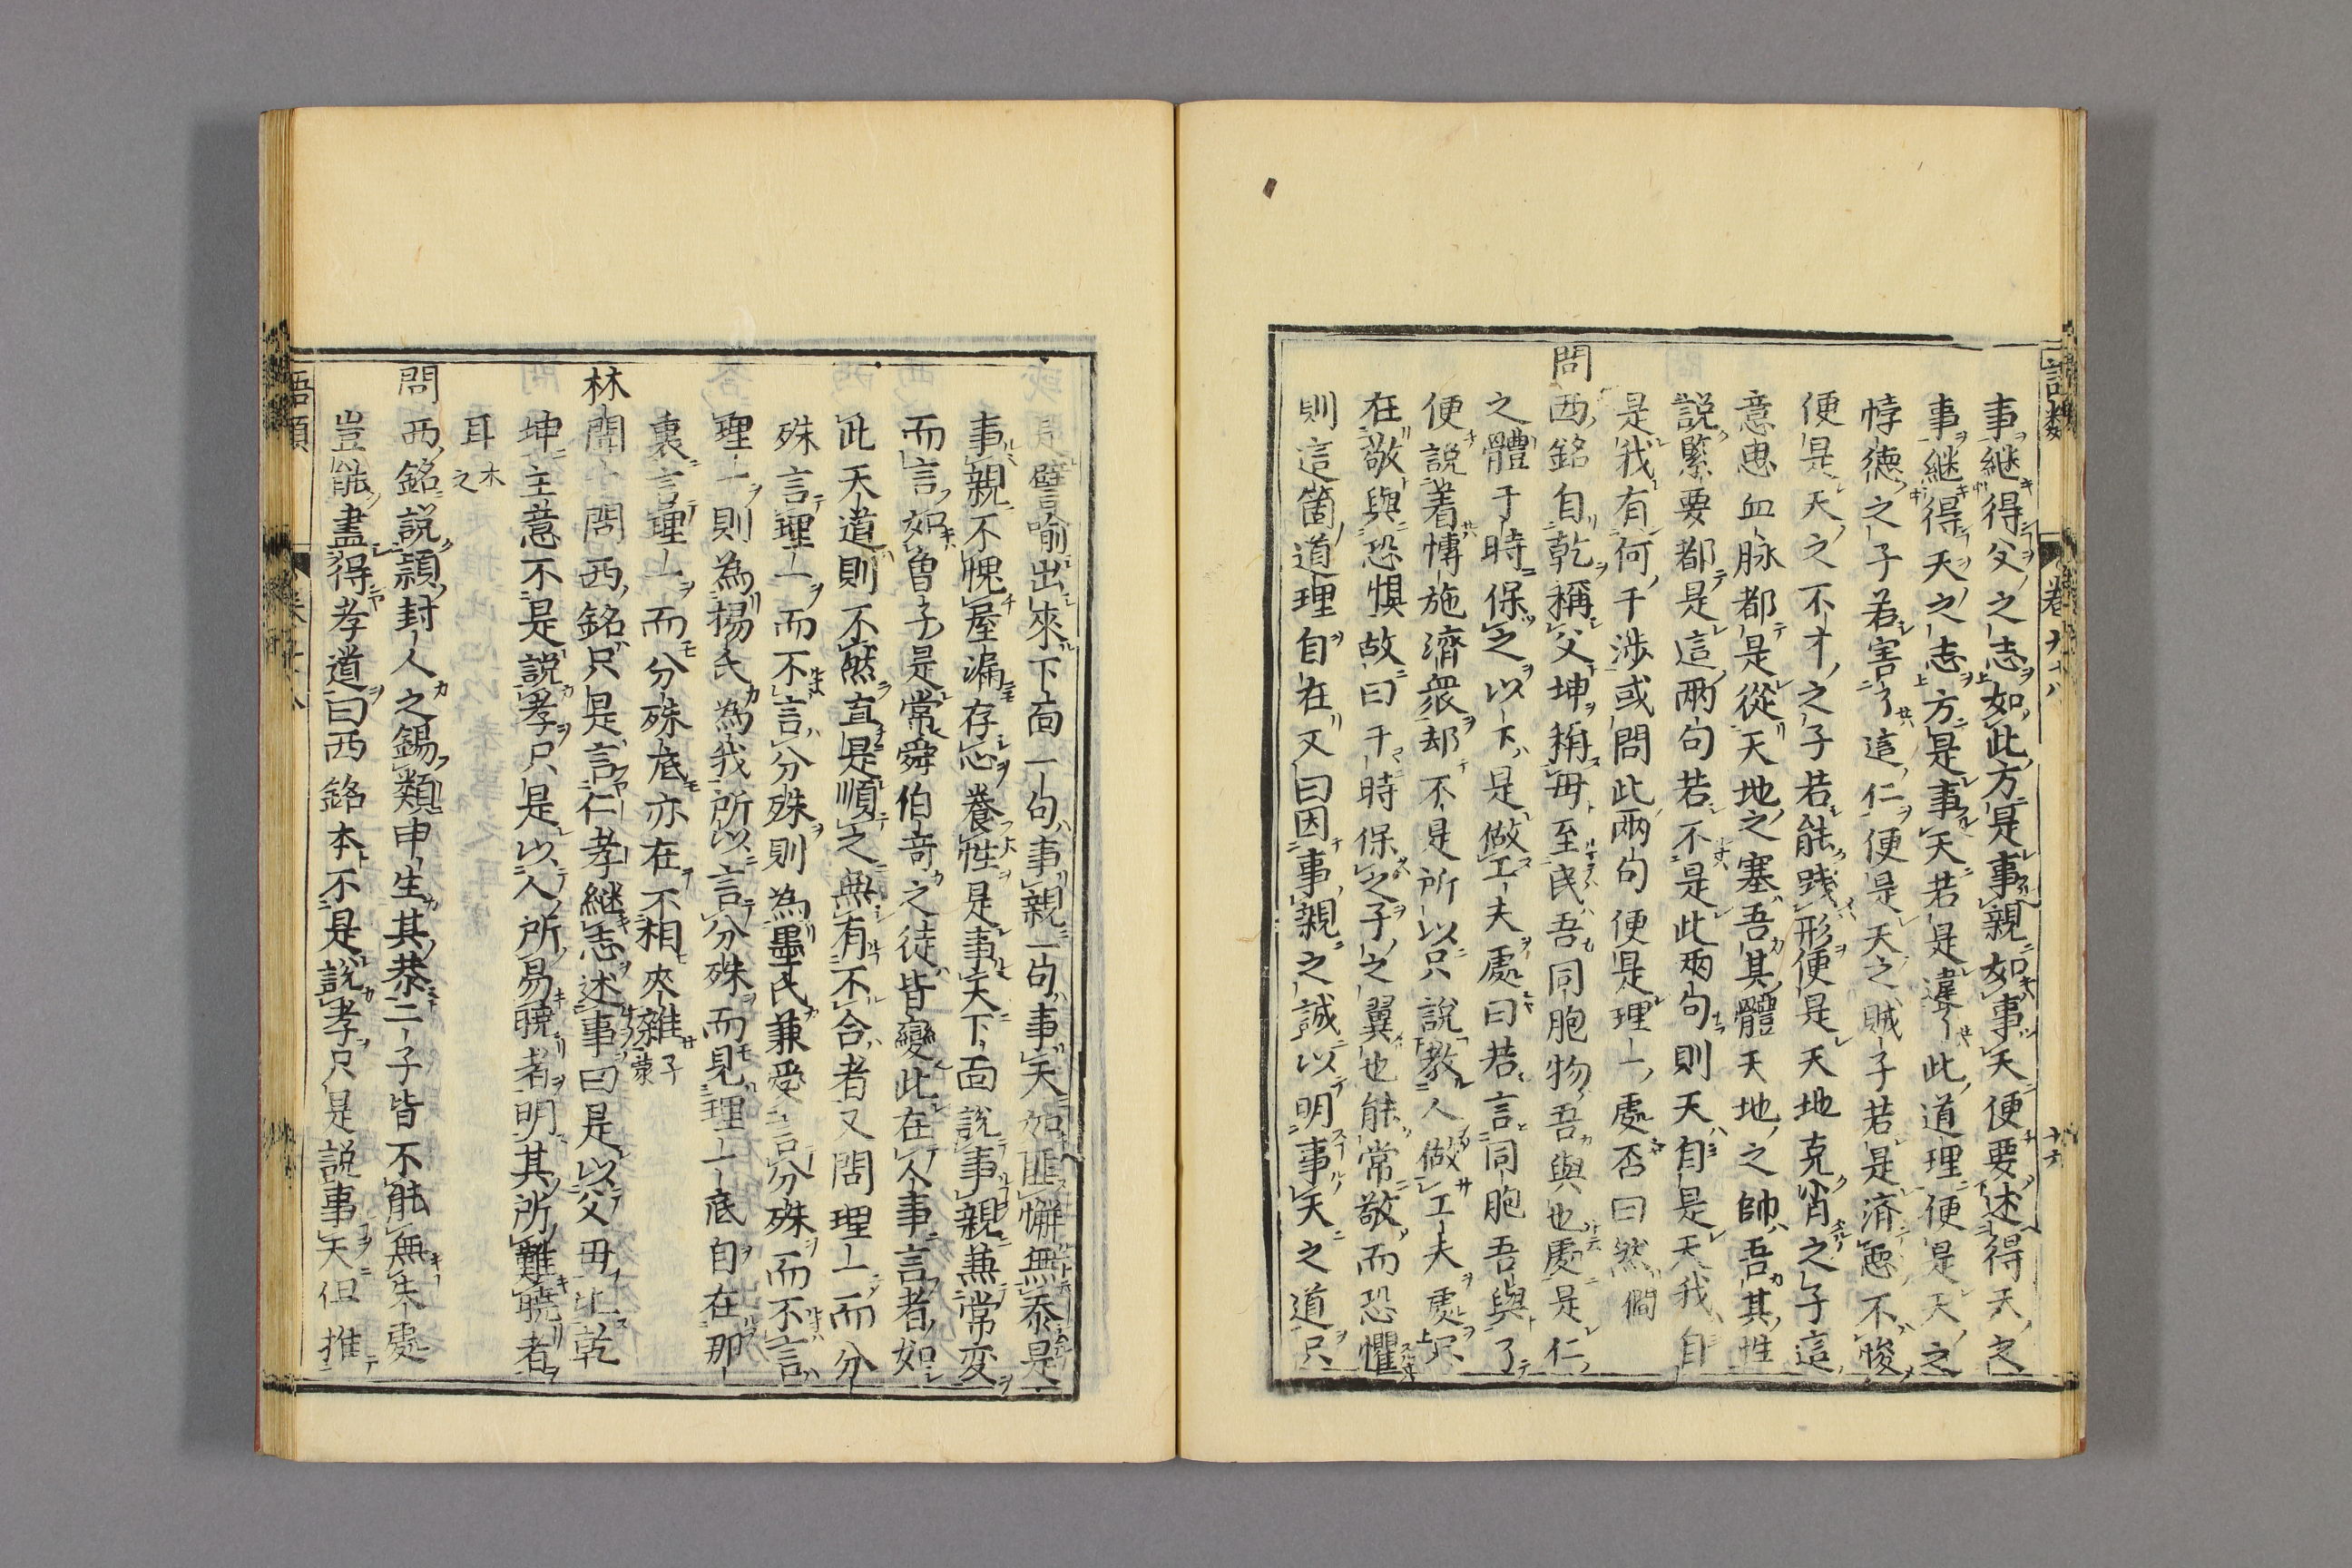 語類 卷九十八 十六
事継得父之志如此方是事親如事天便要述得天之
事継得天之志方是事天若是違此道理便是天之
悖德之子若害了這仁便是天之賊子若是濟惡不悛
便是天之不才之子若能踐形便是天地克肖之子這
意思血脉都是從天地之塞吾其體天地之帥吾其性
説緊要都是這兩句若不是此兩句則天自是天我自
是我有何干涉或問此兩句便是理一處否曰然僩
問西銘自乾稱父坤稱母至民吾同胞物吾與也處是仁
之體于時保之以下是做工夫處曰若言同胞吾與了
便說着愽施濟衆却不是所以只說教人做工夫處只
在敬與恐懼故曰于時保之子之翼也能常敬而恐懼
則這箇道理自在又曰因事親之誠以明事天之道只
是譬喻出來下面一句事親一句事天如匪懈無忝是
事親不愧屋漏存心養性是事天下面說事親兼常変
而言如曾子是常舜伯奇之徒皆變此在人事言者如
此天道則不然直是順之無有不合者又問理一而分
殊言理一而不言分殊則為墨氏兼愛言分殊而不言
理一則為揚氏為我所以言分殊而見理一底自在那
裏言理一而分殊底亦在不相夾雜子蒙
林聞一問西銘只是言仁孝継志述事曰是以父母比乾
坤主意不是説孝只是以人所易曉者明其所難曉者
耳木之
問西銘說頴封人之錫類申生其恭二子皆不能無失處
豈能盡得孝道曰西銘本不是說孝只是説事天但推
語類 卷九十八